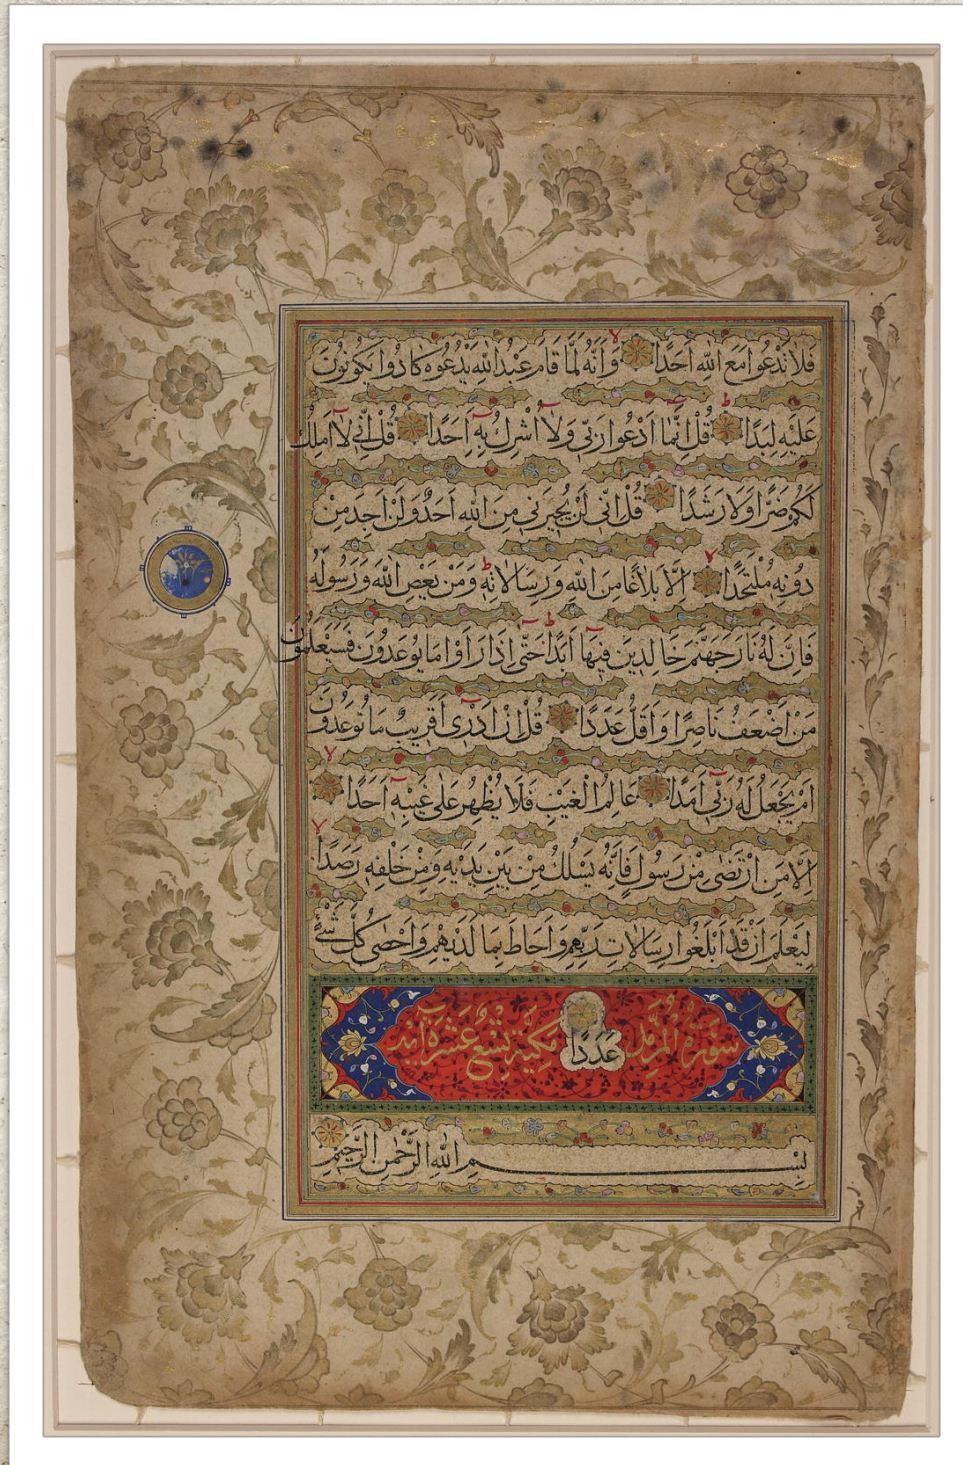 فَلَا تَدْعُوا مَعَ اللّٰهِ اَحَدًا وَاَنَّهُ لَمَّا قَامَ عَبْدُ اللّٰهِ يَدْعُوهُ كَادُوا يَكُونُونَ
عَلَيْهِ لِبَدًا قُلْ اِنَّمَا اَدْعُوا رَبِّى وَلَا اُشْرِكُ بِهِ اَحَدًا قُلْ اِنِّى لَا اَمْلِكُ
لَكُمْ ضَرًّا وَلَا رَشَدًا قُلْ اِنِّى لَنْ يُجِيرَنِى مِنَ اللّٰهِ اَحَدٌ وَلَنْ اَجِدَ مِنْ
دُونِهِ مُلْتَحَدًا اِلَّا بَلَاغًا مِنَ اللّٰهِ وَرِسَالَاتِهِ وَمَنْ يَعْصِ اللّٰهَ وَرَسُولَهُ
فَاِنَّ لَهُ نَارَ جَهَنَّمَ خَالِدِينَ فِيهَا اَبَدًا حَتّٰى اِذَا رَاَوْا مَا يُوعَدُونَ فَسَيَعْلَمُونَ
مَنْ اَضْعَفُ نَاصِرًا وَاَقَلُّ عَدَدًا قُلْ اِنْ اَدْرِى اَقَرِيبٌ مَا تُوعَدُونَ
اَمْ يَجْعَلُ لَهُ رَبِّى اَمَدًا عَالِمُ الْغَيْبِ فَلَا يُظْهِرُ عَلٰى غَيْبِهِ اَحَدًا
اِلَّا مَنِ ارْتَضٰى مِنْ رَسُولٍ فَاِنَّهُ يَسْلُكُ مِنْ بَيْنِ يَدَيْهِ وَمِنْ خَلْفِهِ رَصَدًا
لِيَعْلَمَ اَنْ قَدْ اَبْلَغُوا رِسَالَاتِ رَبِّهِمْ وَاَحَاطَ بِمَا لَدَيْهِمْ وَاَحْصٰى كُلَّ شَىْءٍ
سُورَةُ الْمُزَّمِّلِ عَدَدًا مَكِّيَّةٌ تِسْعَ عَشْرَةَ اٰيَة
بِسْمِ اللّٰهِ الرَّحْمٰنِ الرَّحِيمِ